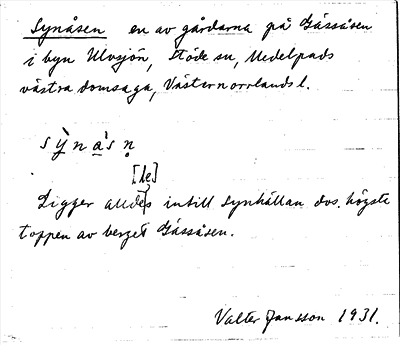 Synåsen en av gårdarna på Gåssåsen
i byn Ulvsjön, Stöde sn, Medelpads
västra domsaga, Västernorrlands l.
sỳnås n̥
[le]
Ligger alldes intill Synhällan dvs. högste
toppen av berget Gåssåsen.
Valter Jansson 1931.